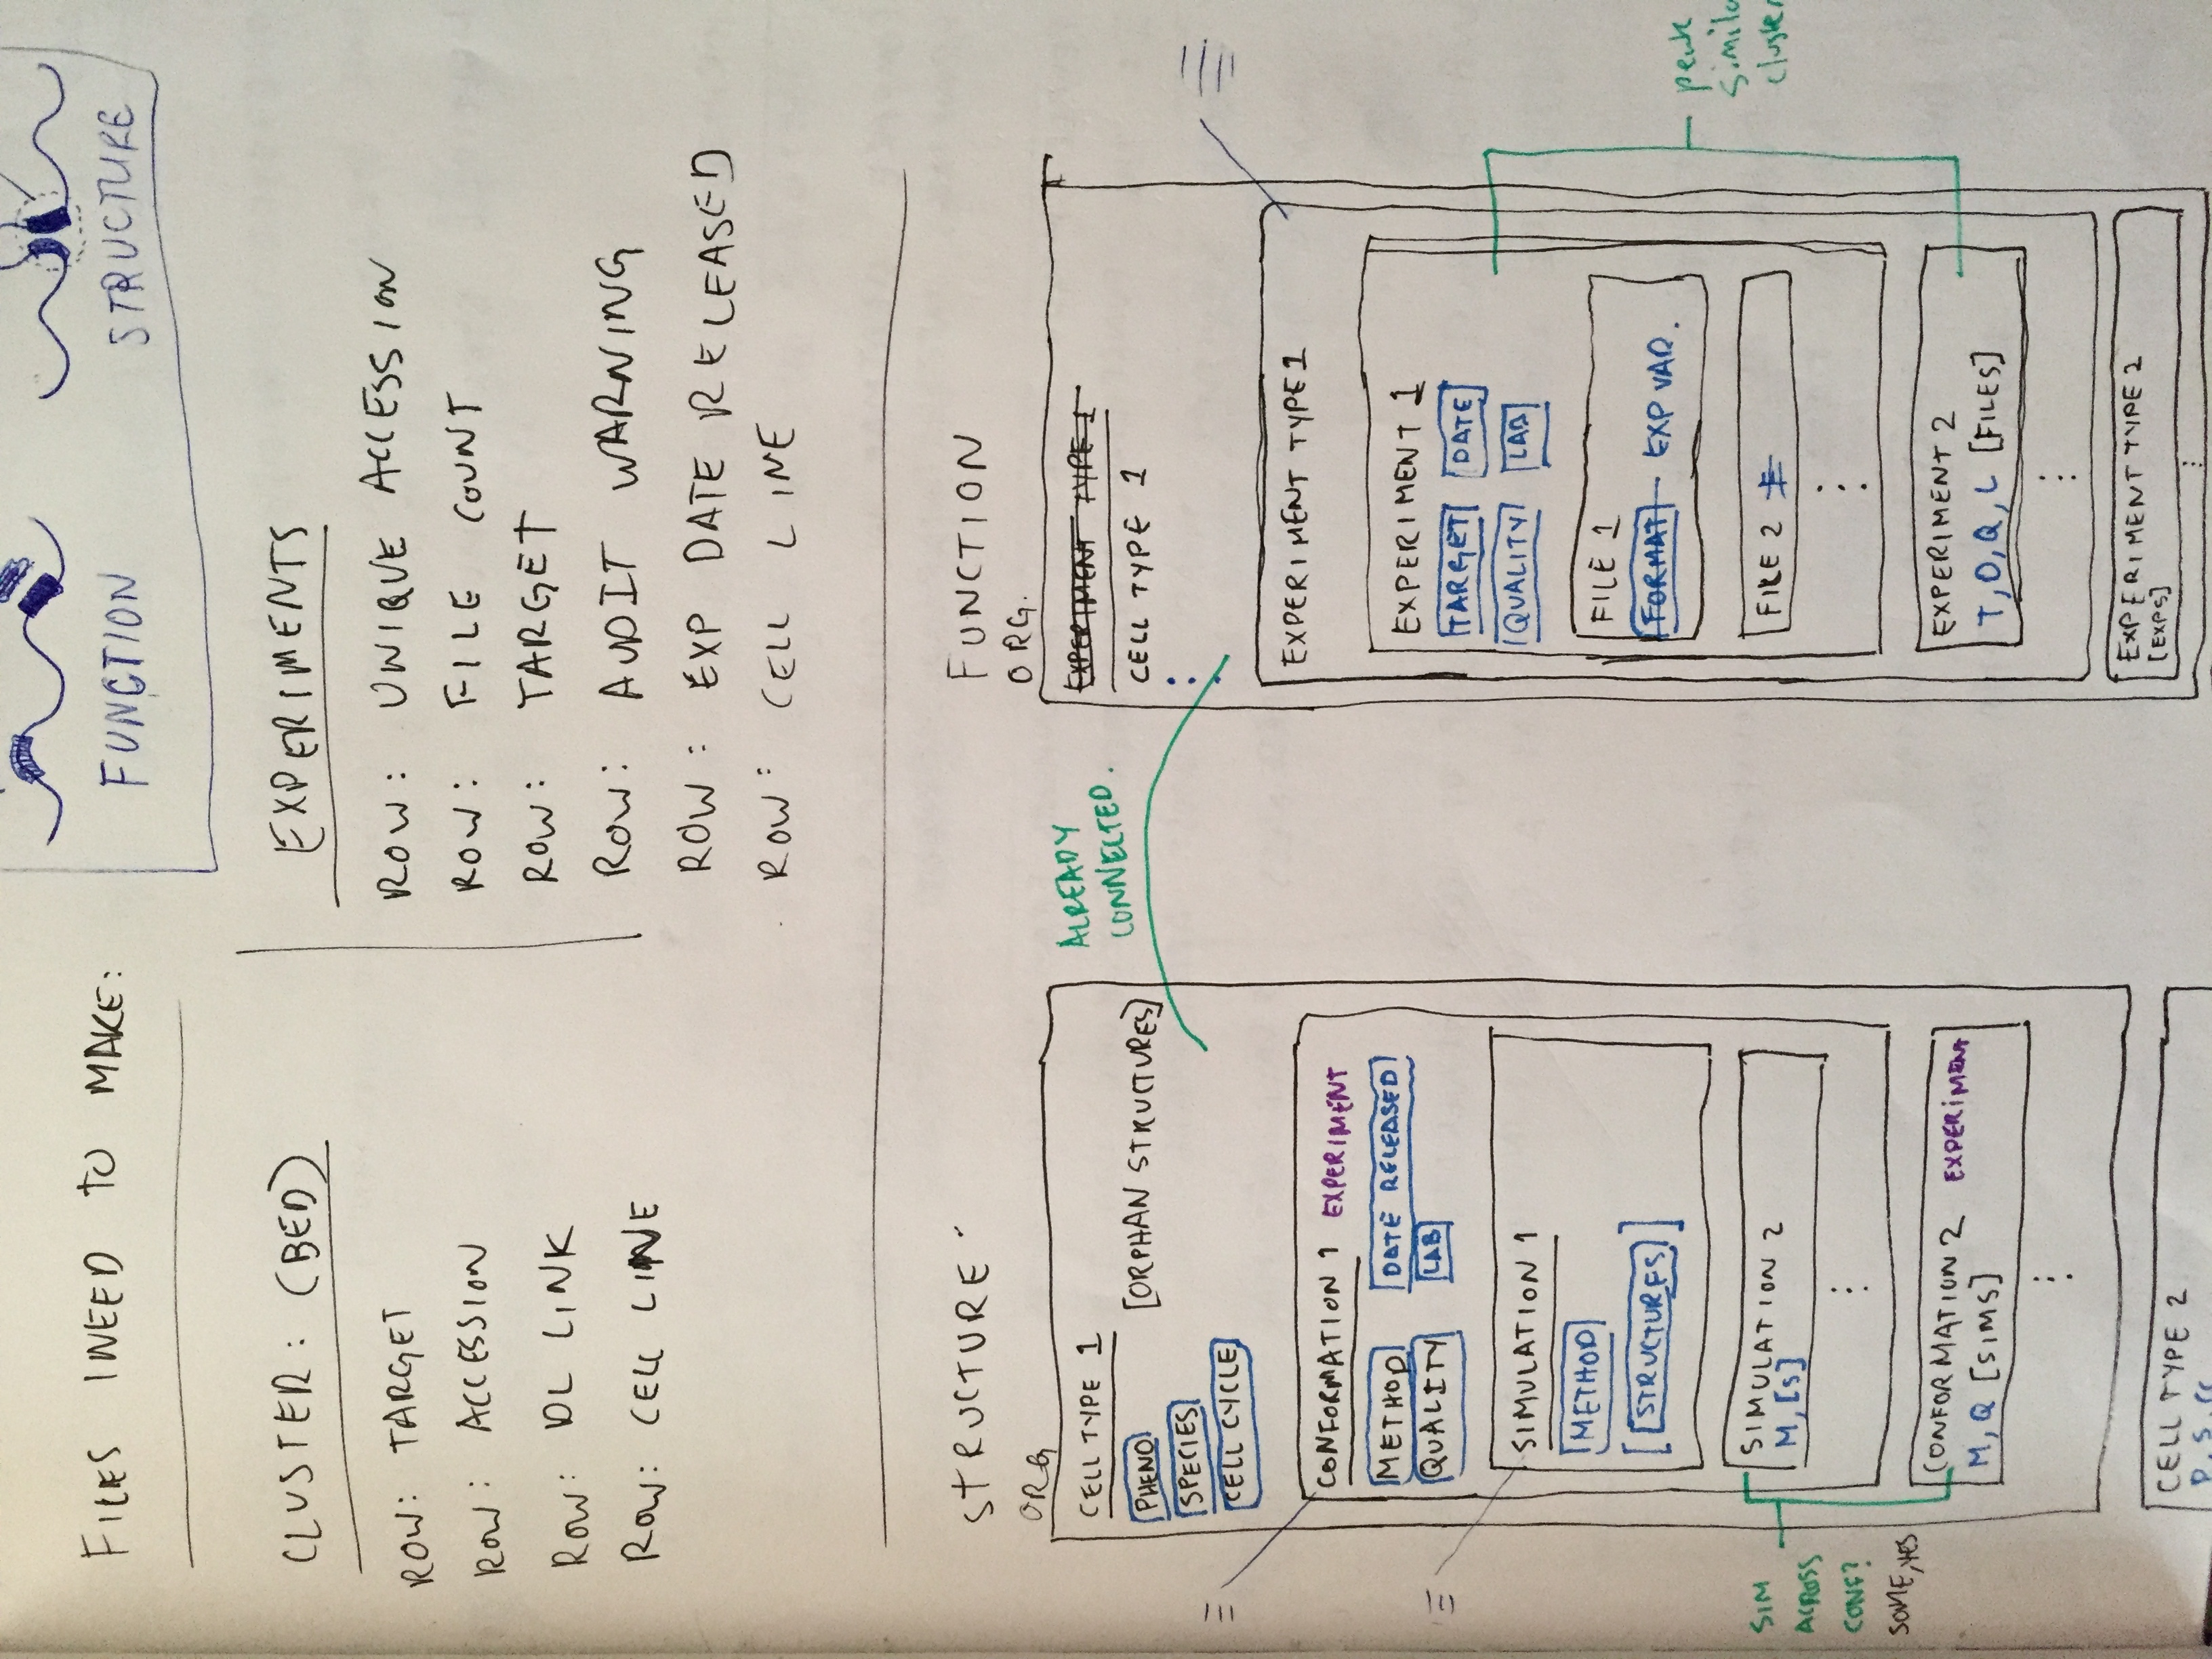 FUNCTION
STRUCTURE
FILES I NEED TO MAKE:
CLUSTER: (BED)
ROW: TARGET
ROW: ACCESSION
ROW: DL LINK
ROW: CELL LINE
EXPERIMENTS
ROW: UNIQUE ACCESSION
ROW: FILE COUNT
ROW: TARGET
ROW: AUDIT WARNING
ROW: EXP DATE RELEASED
ROW: CELL LINE
STRUCTURE
ORG
CELL TYPE 1
PHENO
[ORPHAN STRUCTURES]
SPECIES
CELL CYCLE
CONFORMATION 1 EXPERIMENT
METHOD DATE RELEASED
QUALITY LAB
SIMULATION 1
METHOD
[STRUCTURES]
SIMULATION 2
M, [S]
SIM
ACROSS
CONF?
SOME, YES
CONFORMATION 2 EXPERIMENT
M, Q [SIMS]
CELL TYPE 2
P, S, CC
ALREADY
CONNECTED.
FUNCTION
ORG.
EXPERIMENT TYPE 1
CELL TYPE 1
EXPERIMENT TYPE 1
EXPERIMENT 1
TARGET DATE
QUALITY LAB
FILE 1
FORMAT EXP VAR.
FILE 2
EXPERIMENT 2
T, D, Q, L [FILES]
EXPERIMENT TYPE 2
[EXPS]
peak